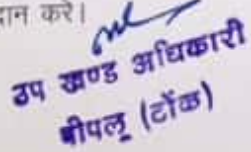 दान करे।
उप खण्ड अधिकारी
पीपलू (टोंक)